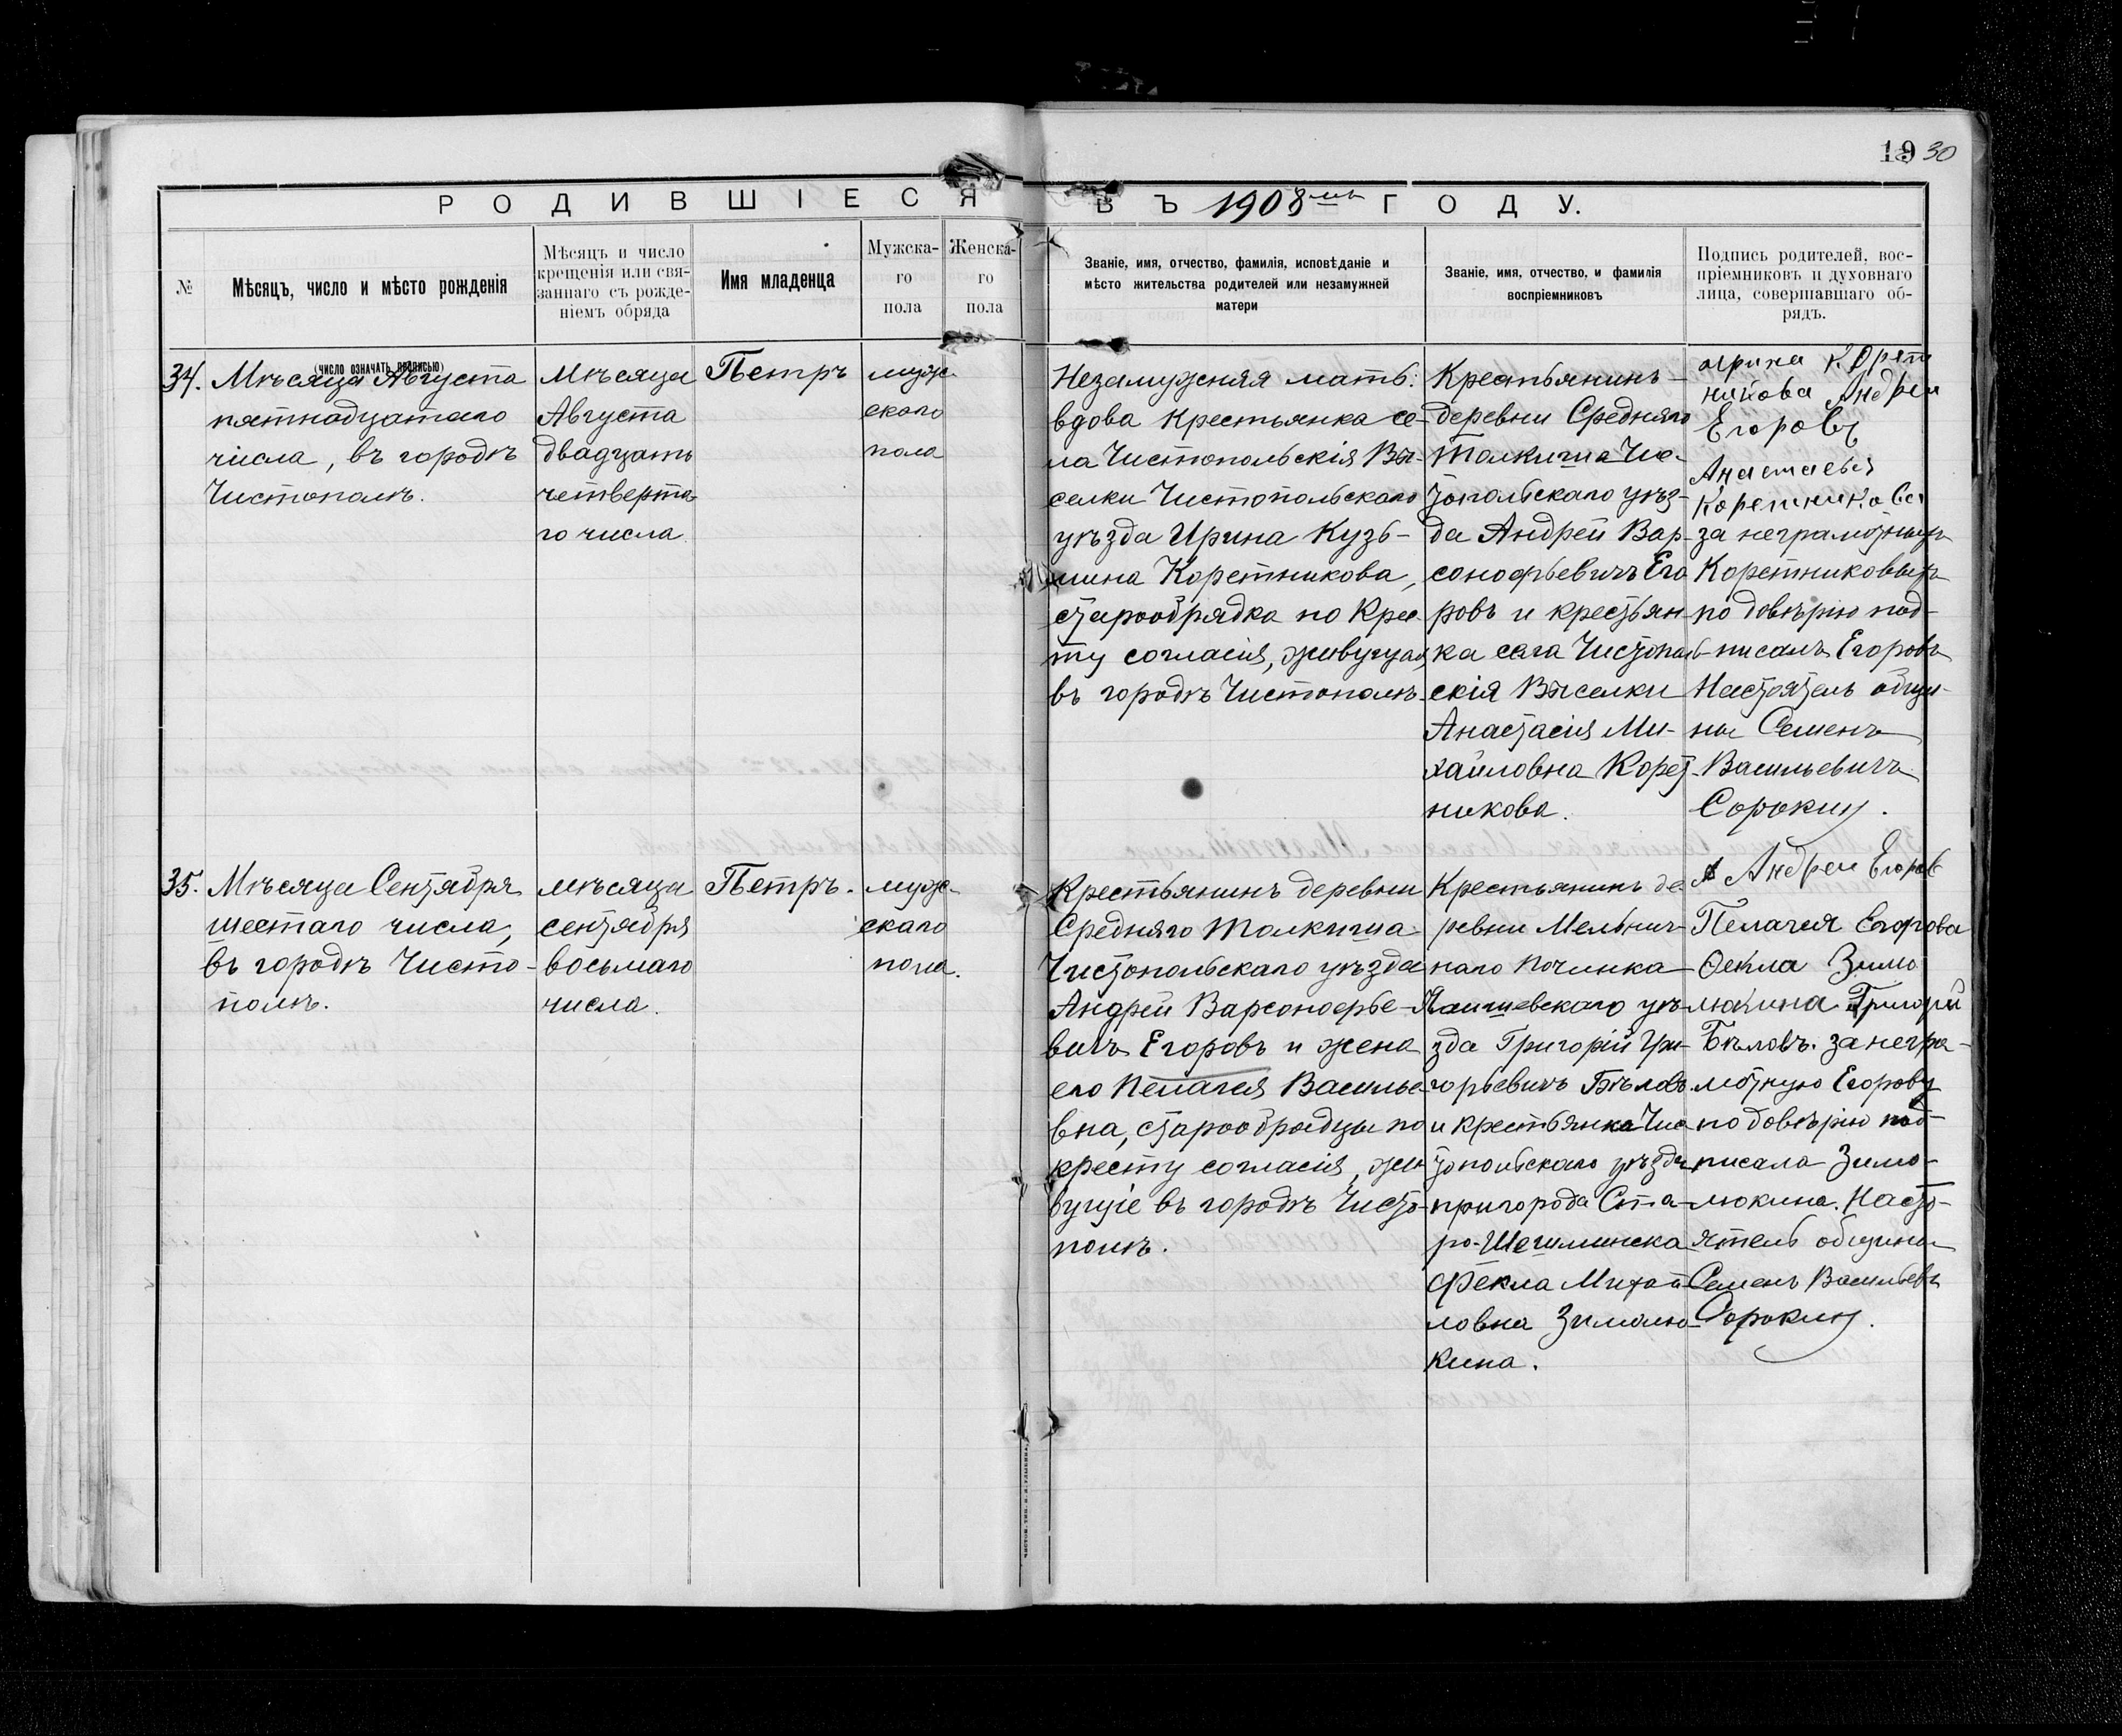 19 30
РОДИВШІЕСЯ ВЪ 1908мъ ГОДУ.
№
Мѣсяцъ, число и мѣсто рожденія
(число означать прописью)
Мѣсяцъ и число
крещенія или свя-
заннаго съ рожде-
ніемъ обряда
Имя младенца
Мужска-
го
пола
Женска-
го
пола
Званіе, имя, отчество, фамилія, исповѣданіе и
мѣсто жительства родителей или незамужней
матери
Званіе, имя, отчество, и фамилія
воспріемниковъ
Подпись родителей, вос-
пріемниковъ и духовнаго
лица, совершавшаго об-
рядъ.
34.
Мѣсяца Августа
пятнадцатаго
числа, въ городѣ
Чистополѣ.
Мѣсяца
Августа
двадцать
четверта
го числа
Петръ
муж-
скаго
пола
Незамужняя мать:
вдова крестьянка се-
ла Чистопольскія Вы-
селки Чистопольскаго
уѣзда Ирина Кузь-
мина Коретникова,
старообрядка по Крес-
ту согласія, живущая
въ городѣ Чистополѣ.
Крестьянинъ
деревни Средняго
Толкиша Чис-
топольскаго уѣз-
да Андрей Вар-
сонофьевичъ Его
ровъ и крестьян-
ка села Чистополь-
скія Выселки
Анастасія Ми-
хайловна Корет-
никова.
ирина Корет
никова Андрей
Егоровъ
Анастасья
Коретникова
за неграмотныхъ
Коретниковыхъ
по довѣрію под-
писалъ Егоровъ
Настоятель общи-
ны Семенъ
Васильевичъ
Сорокинъ.
35.
Мѣсяца Сентября
шестаго числа,
въ городѣ Чисто-
полѣ.
мѣсяца
сентября
восьмаго
числа.
Петръ.
муж-
скаго
пола.
Крестьянинъ деревни
Средняго Толкиша
Чистопольскаго уѣзда
Андрей Варсонофье-
вичъ Егоровъ и жена
его Пелагея Василье
вна, старообрядцы по
кресту согласія, жи
вущіе въ городѣ Чисто-
полѣ.
Крестьянинъ де
ревни Мельнич-
наго Починка
Лаишевскаго уѣ-
зда Григорій Гри-
горьевичъ Бѣловъ
и крестьянка Чис
топольскаго уѣзда
пригорода Ста-
ро-Шешминска
Фекла Михай-
ловна Зимолю-
кина.
Андрей Егоров
Пелагея Егорова
Ѳекла Зимо
люкина Григорій
Бѣловъ. за негра-
мотную Егорову
по довѣрію под-
писала Зимо-
люкина. Насто-
ятель общины
Семенъ Васильевъ
Сорокинъ.